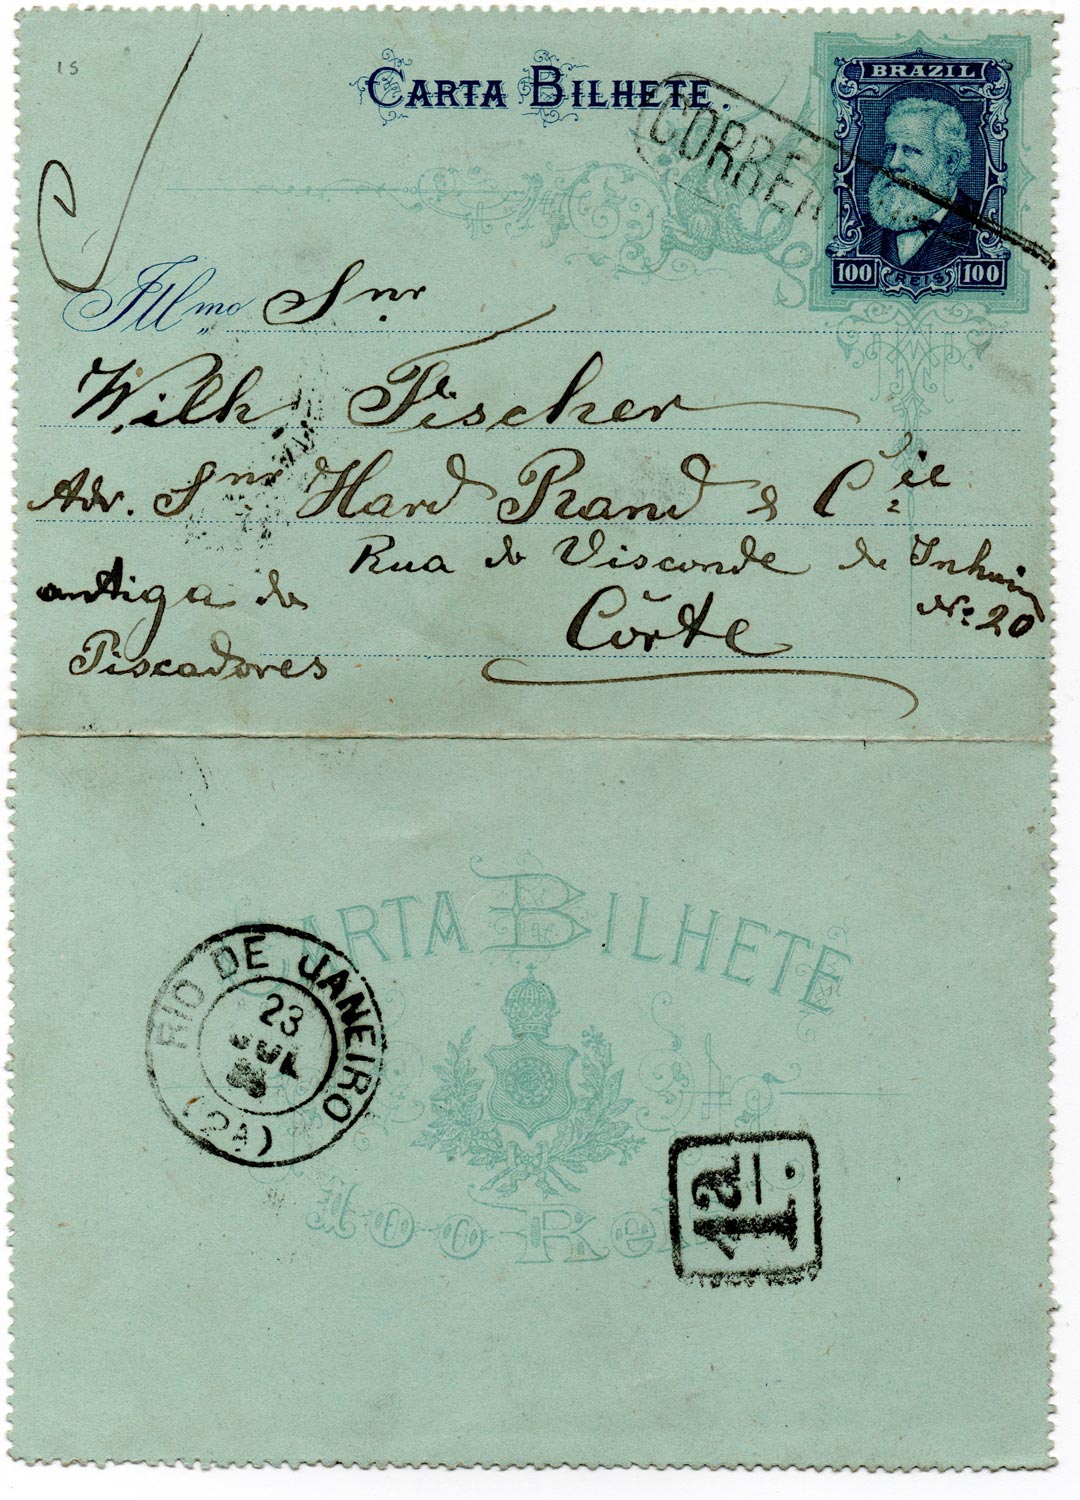 15
CARTA BILHETE.
BRAZIL
100 REIS 100
Illmo Snr
Wilh. Fischer
Adr. Snr Hard Rand & Cie
Rua do Visconde de
No. 20
antiga dos
Piscadores
Côrte
CARTA BILHETE
RIO DE JANEIRO
23
JUL
(2A)
1a